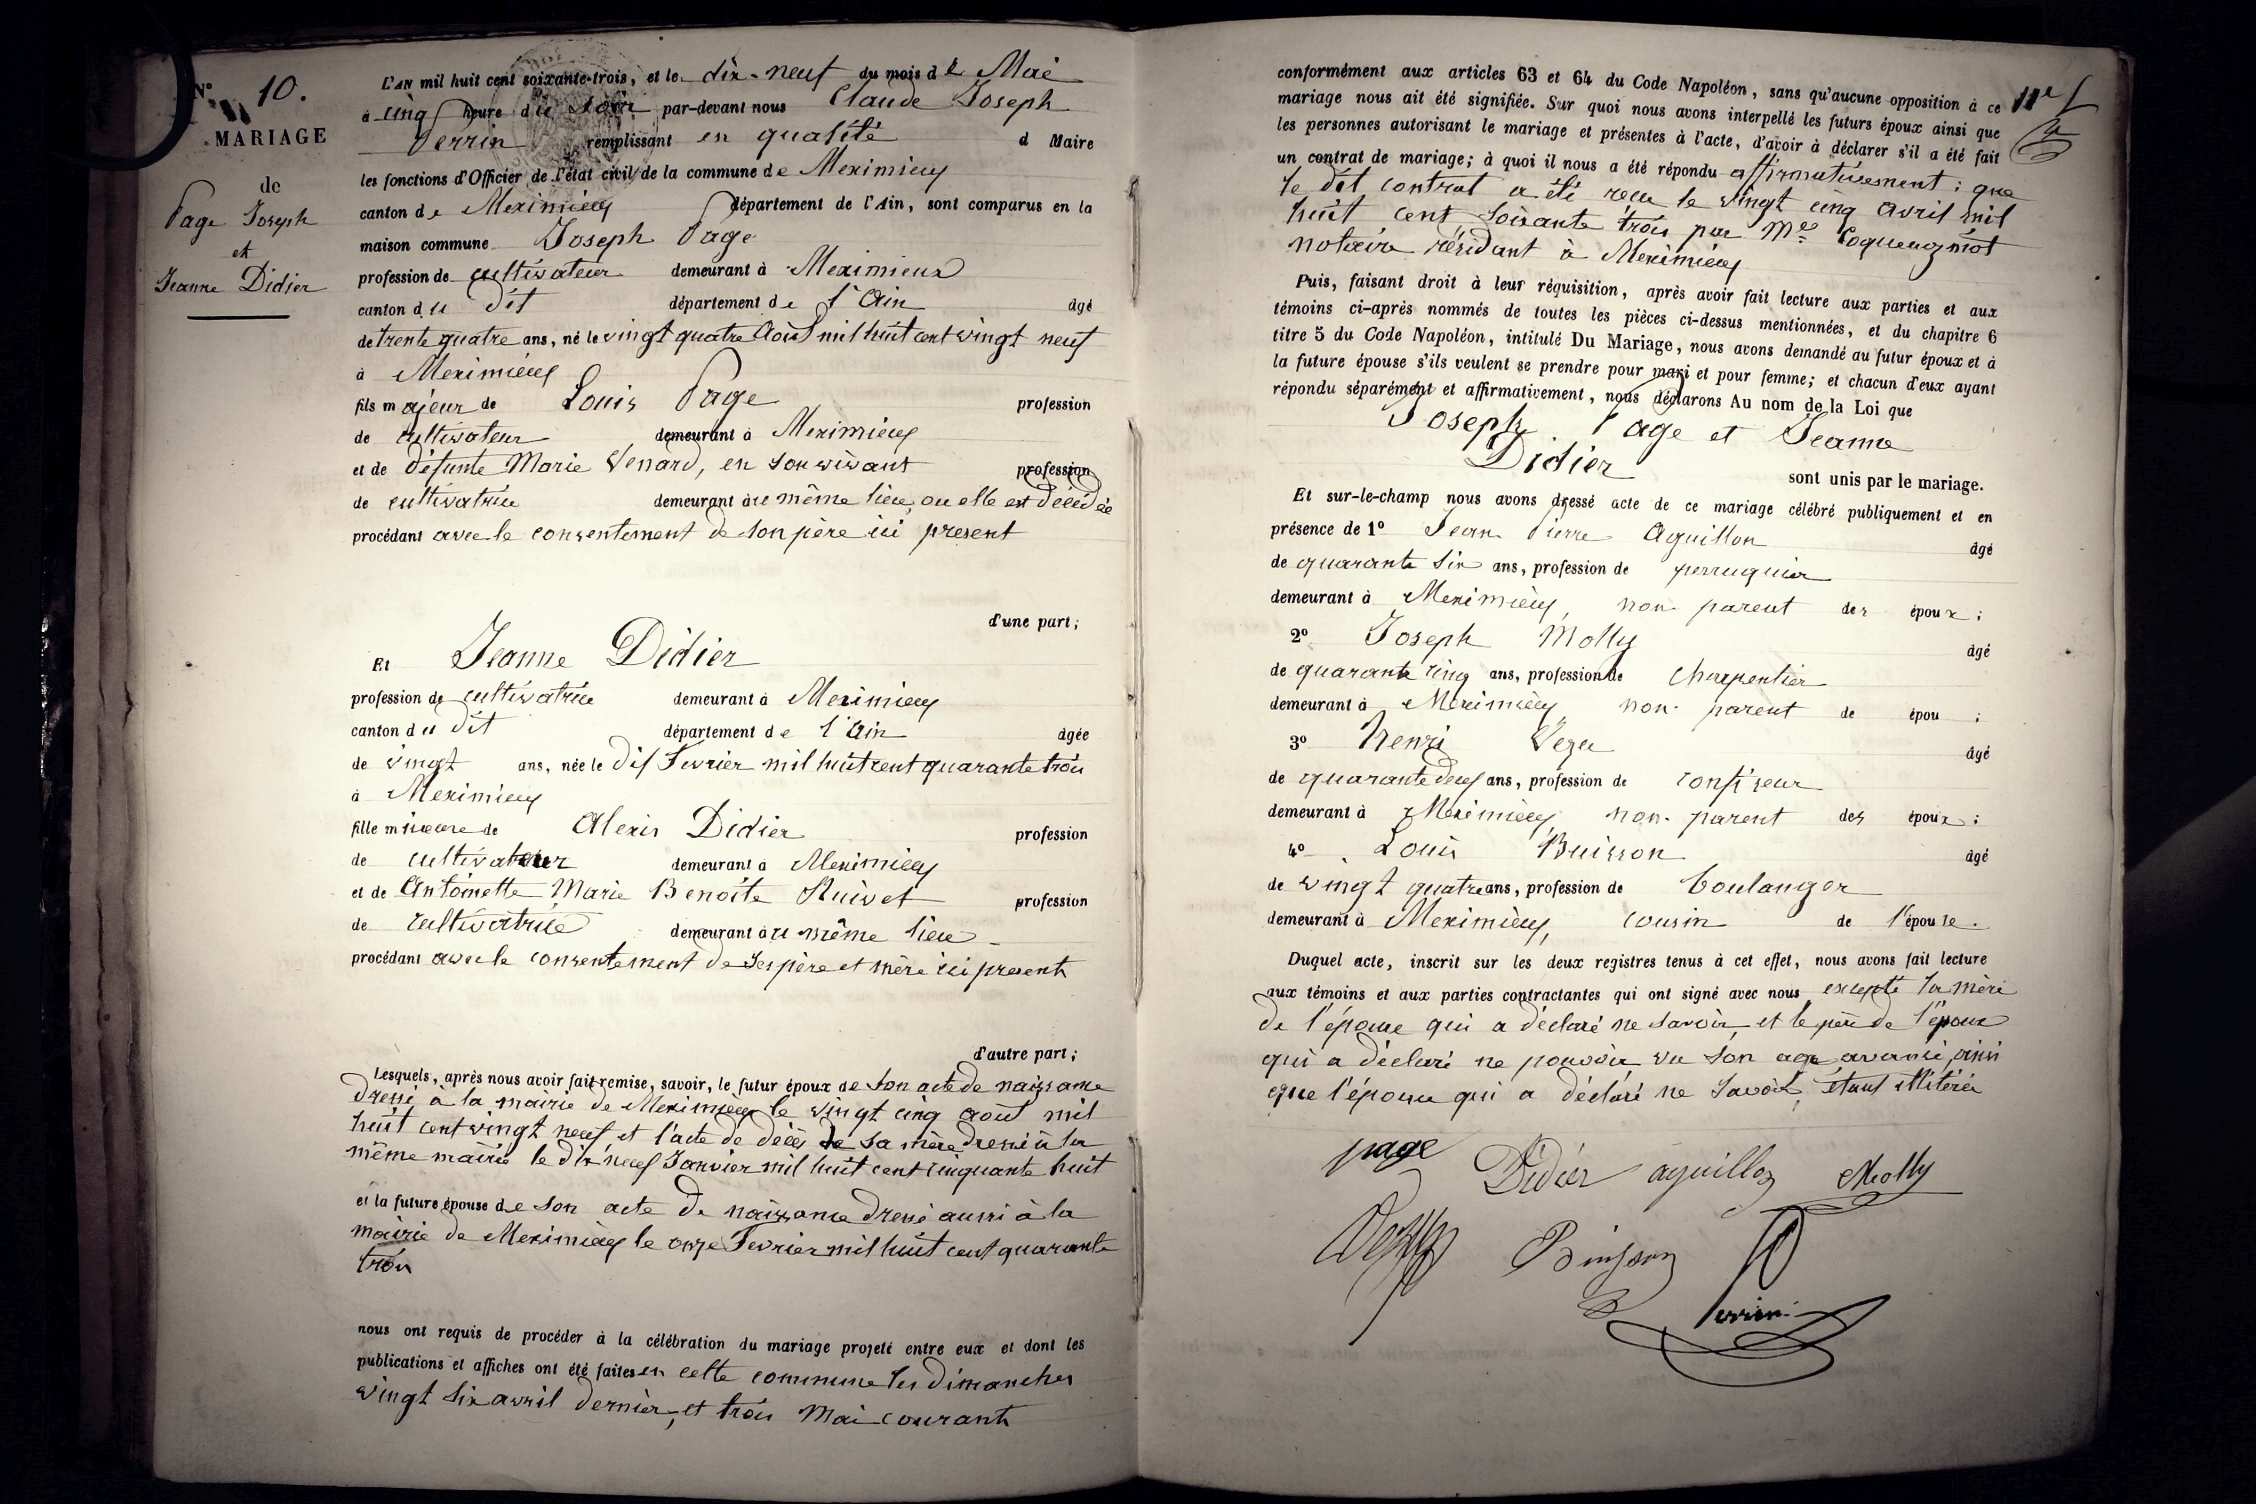 N° 10.
MARIAGE
de
Page Joseph
et
Jeanne Didier
L'AN mil huit cent soixante-trois, et le dix-neuf du mois de Mai
à cinq heure du soir par-devant nous Claude Joseph
Perrin remplissant en qualité d Maire
les fonctions d'Officier de l'état civil de la commune de Meximieux
canton de Meximieux département de l'Ain, sont comparus en la
maison commune Joseph Page
profession de cultivateur demeurant à Meximieux
canton du dit département de l'Ain âgé
de trente quatre ans, né le vingt quatre Août mil huit cent vingt neuf
à Meximieux
fils majeur de Louis Page profession
de cultivateur demeurant à Meximieux
et de défunte Marie Venard, en son vivant profession
de cultivatrice demeurant au même lieu, ou elle est décédée
procédant avec le consentement de son père ici présent
d'une part;
Et Jeanne Didier
profession de cultivatrice demeurant à Meximieux
canton du dit département de l'Ain âgée
de vingt ans, née le dix Fevrier mil huit cent quarante trois
à Meximieux
fille mineure de Alexis Didier profession
de cultivateur demeurant à Meximieux
et de Antoinette Marie Benoite Ruivet profession
de cultivatrice demeurant au même lieu
procédant avec le consentement de ses père et mère ici présents
d'autre part;
Lesquels, après nous avoir fait remise, savoir, le futur époux de son acte de naissance
dressé à la mairie de Meximieux le vingt cinq août mil
huit cent vingt neuf, et l'acte de décès de sa mère dressé à la
même mairie le dix neuf Janvier mil huit cent cinquante huit
et la future épouse de son acte de naissance dressé aussi à la
mairie de Meximieux le onze Fevrier mil huit cent quarante
trois
nous ont requis de procéder à la célébration du mariage projeté entre eux et dont les
publications et affiches ont été faites en cette commune les dimanches
vingt six avril dernier, et trois Mai courant
conformément aux articles 63 et 64 du Code Napoléon, sans qu'aucune opposition à ce
mariage nous ait été signifiée. Sur quoi nous avons interpellé les futurs époux ainsi que
les personnes autorisant le mariage et présentes à l'acte, d'avoir à déclarer s'il a été fait
un contrat de mariage; à quoi il nous a été répondu affirmativement; que
le dit contrat a été reçu le vingt cinq avril mil
huit cent soixante trois par Me
notaire résidant à Meximieux
Puis, faisant droit à leur réquisition, après avoir fait lecture aux parties et aux
témoins ci-après nommés de toutes les pièces ci-dessus mentionnées, et du chapitre 6
titre 5 du Code Napoléon, intitulé Du Mariage, nous avons demandé au futur époux et à
la future épouse s'ils veulent se prendre pour mari et pour femme; et chacun d'eux ayant
répondu séparément et affirmativement, nous déclarons Au nom de la Loi que
Joseph Page et Jeanne
Didier
sont unis par le mariage.
Et sur-le-champ nous avons dressé acte de ce mariage célébré publiquement et en
présence de 1° Jean Pierre Aguillon âgé
de quarante six ans, profession de perruquier
demeurant à Meximieux, non parent des époux;
2° Joseph Molly âgé
de quarante cinq ans, profession de charpentier
demeurant à Meximieux non parent de épou ;
3° Henri âgé
de quarante deux ans, profession de confiseur
demeurant à Meximieux non parent des époux;
4° Louis Buisson âgé
de vingt quatre ans, profession de boulanger
demeurant à Meximieux, cousin de l'épouse.
Duquel acte, inscrit sur les deux registres tenus à cet effet, nous avons fait lecture
aux témoins et aux parties contractantes qui ont signé avec nous, excepté la mère
de l'épouse qui a déclaré ne savoir, et le père de l'époux
qui a déclaré ne pouvoir, vu son age avancé, ainsi
que l'épouse qui a déclaré ne savoir, étant illitérée
page Didier aguillon Molly
Buisson
Perrin